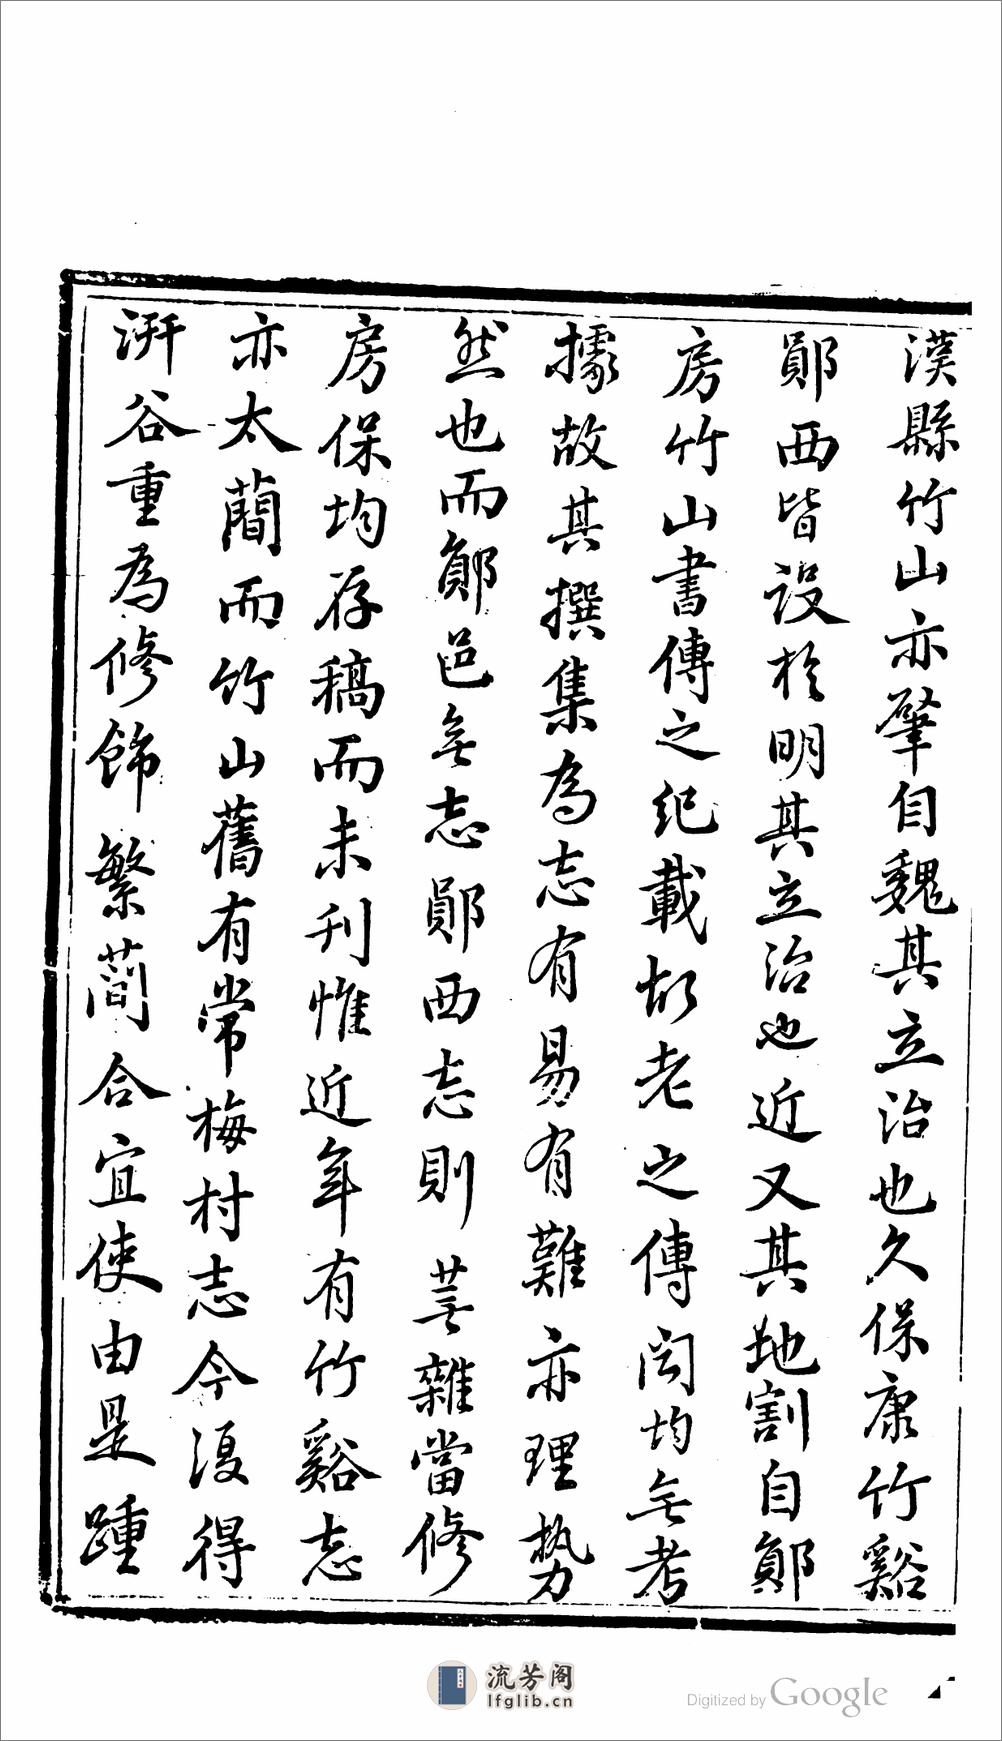 漢縣竹山亦肇自魏其立治也久保康竹谿
鄖西皆設於明其立治也近又其地割自鄖
房竹山書傳之紀載故老之傳聞均無考
據故其撰集為志有易有難亦理勢
然也而鄖邑無志鄖西志則蕪雜當修
房保均存稿而未刊惟近年有竹谿志
亦太簡而竹山舊有常梅村志今復得
汧谷重為修飾繁簡合宜使由是踵
流芳阁
lfglib.cn
Digitized by Google